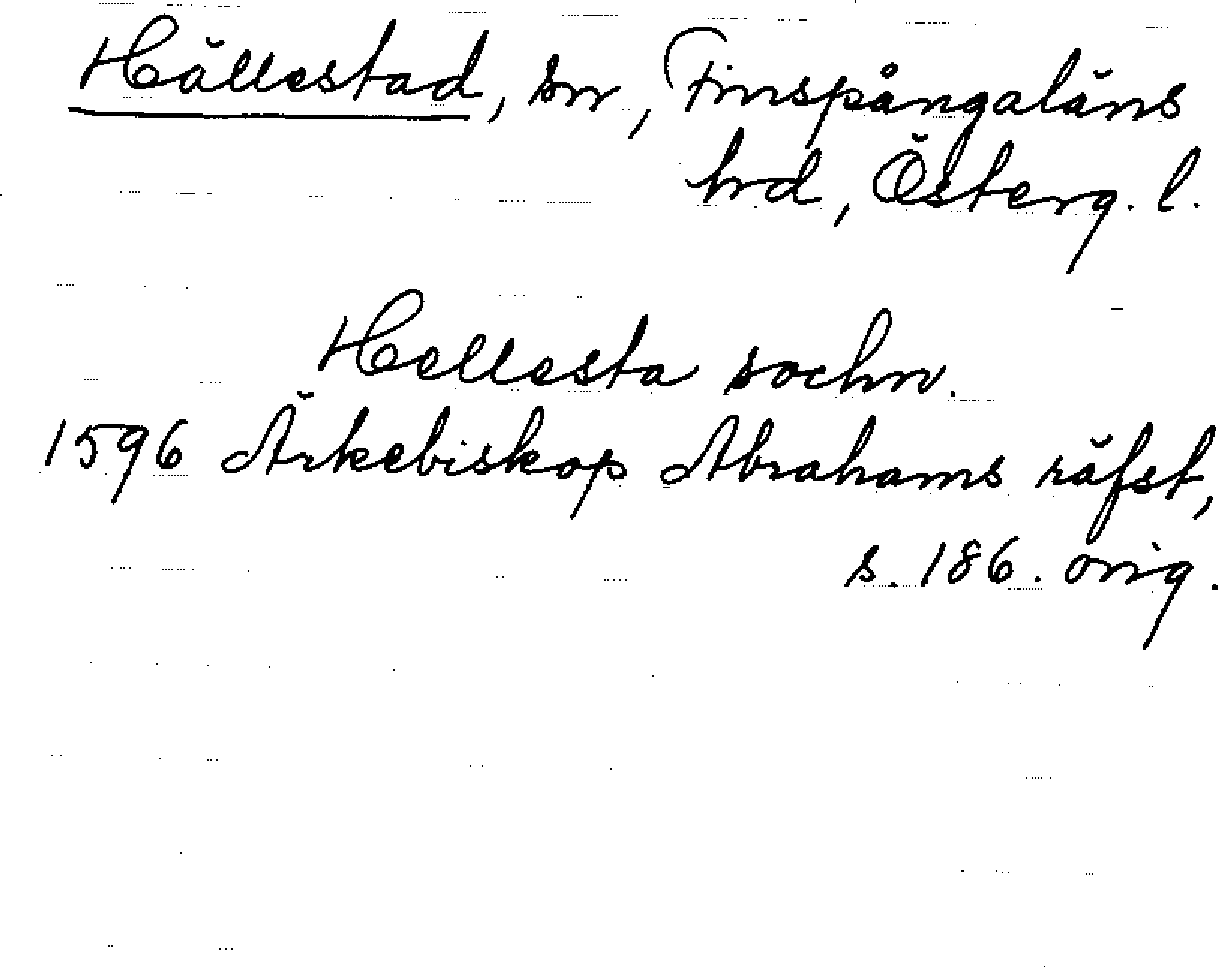 Hällestad, sn, Finspångaläns
hrd, Österg. l.
Hellesta sochn.
1596 Ärkebiskop Abrahams räfst,
s. 186. orig.